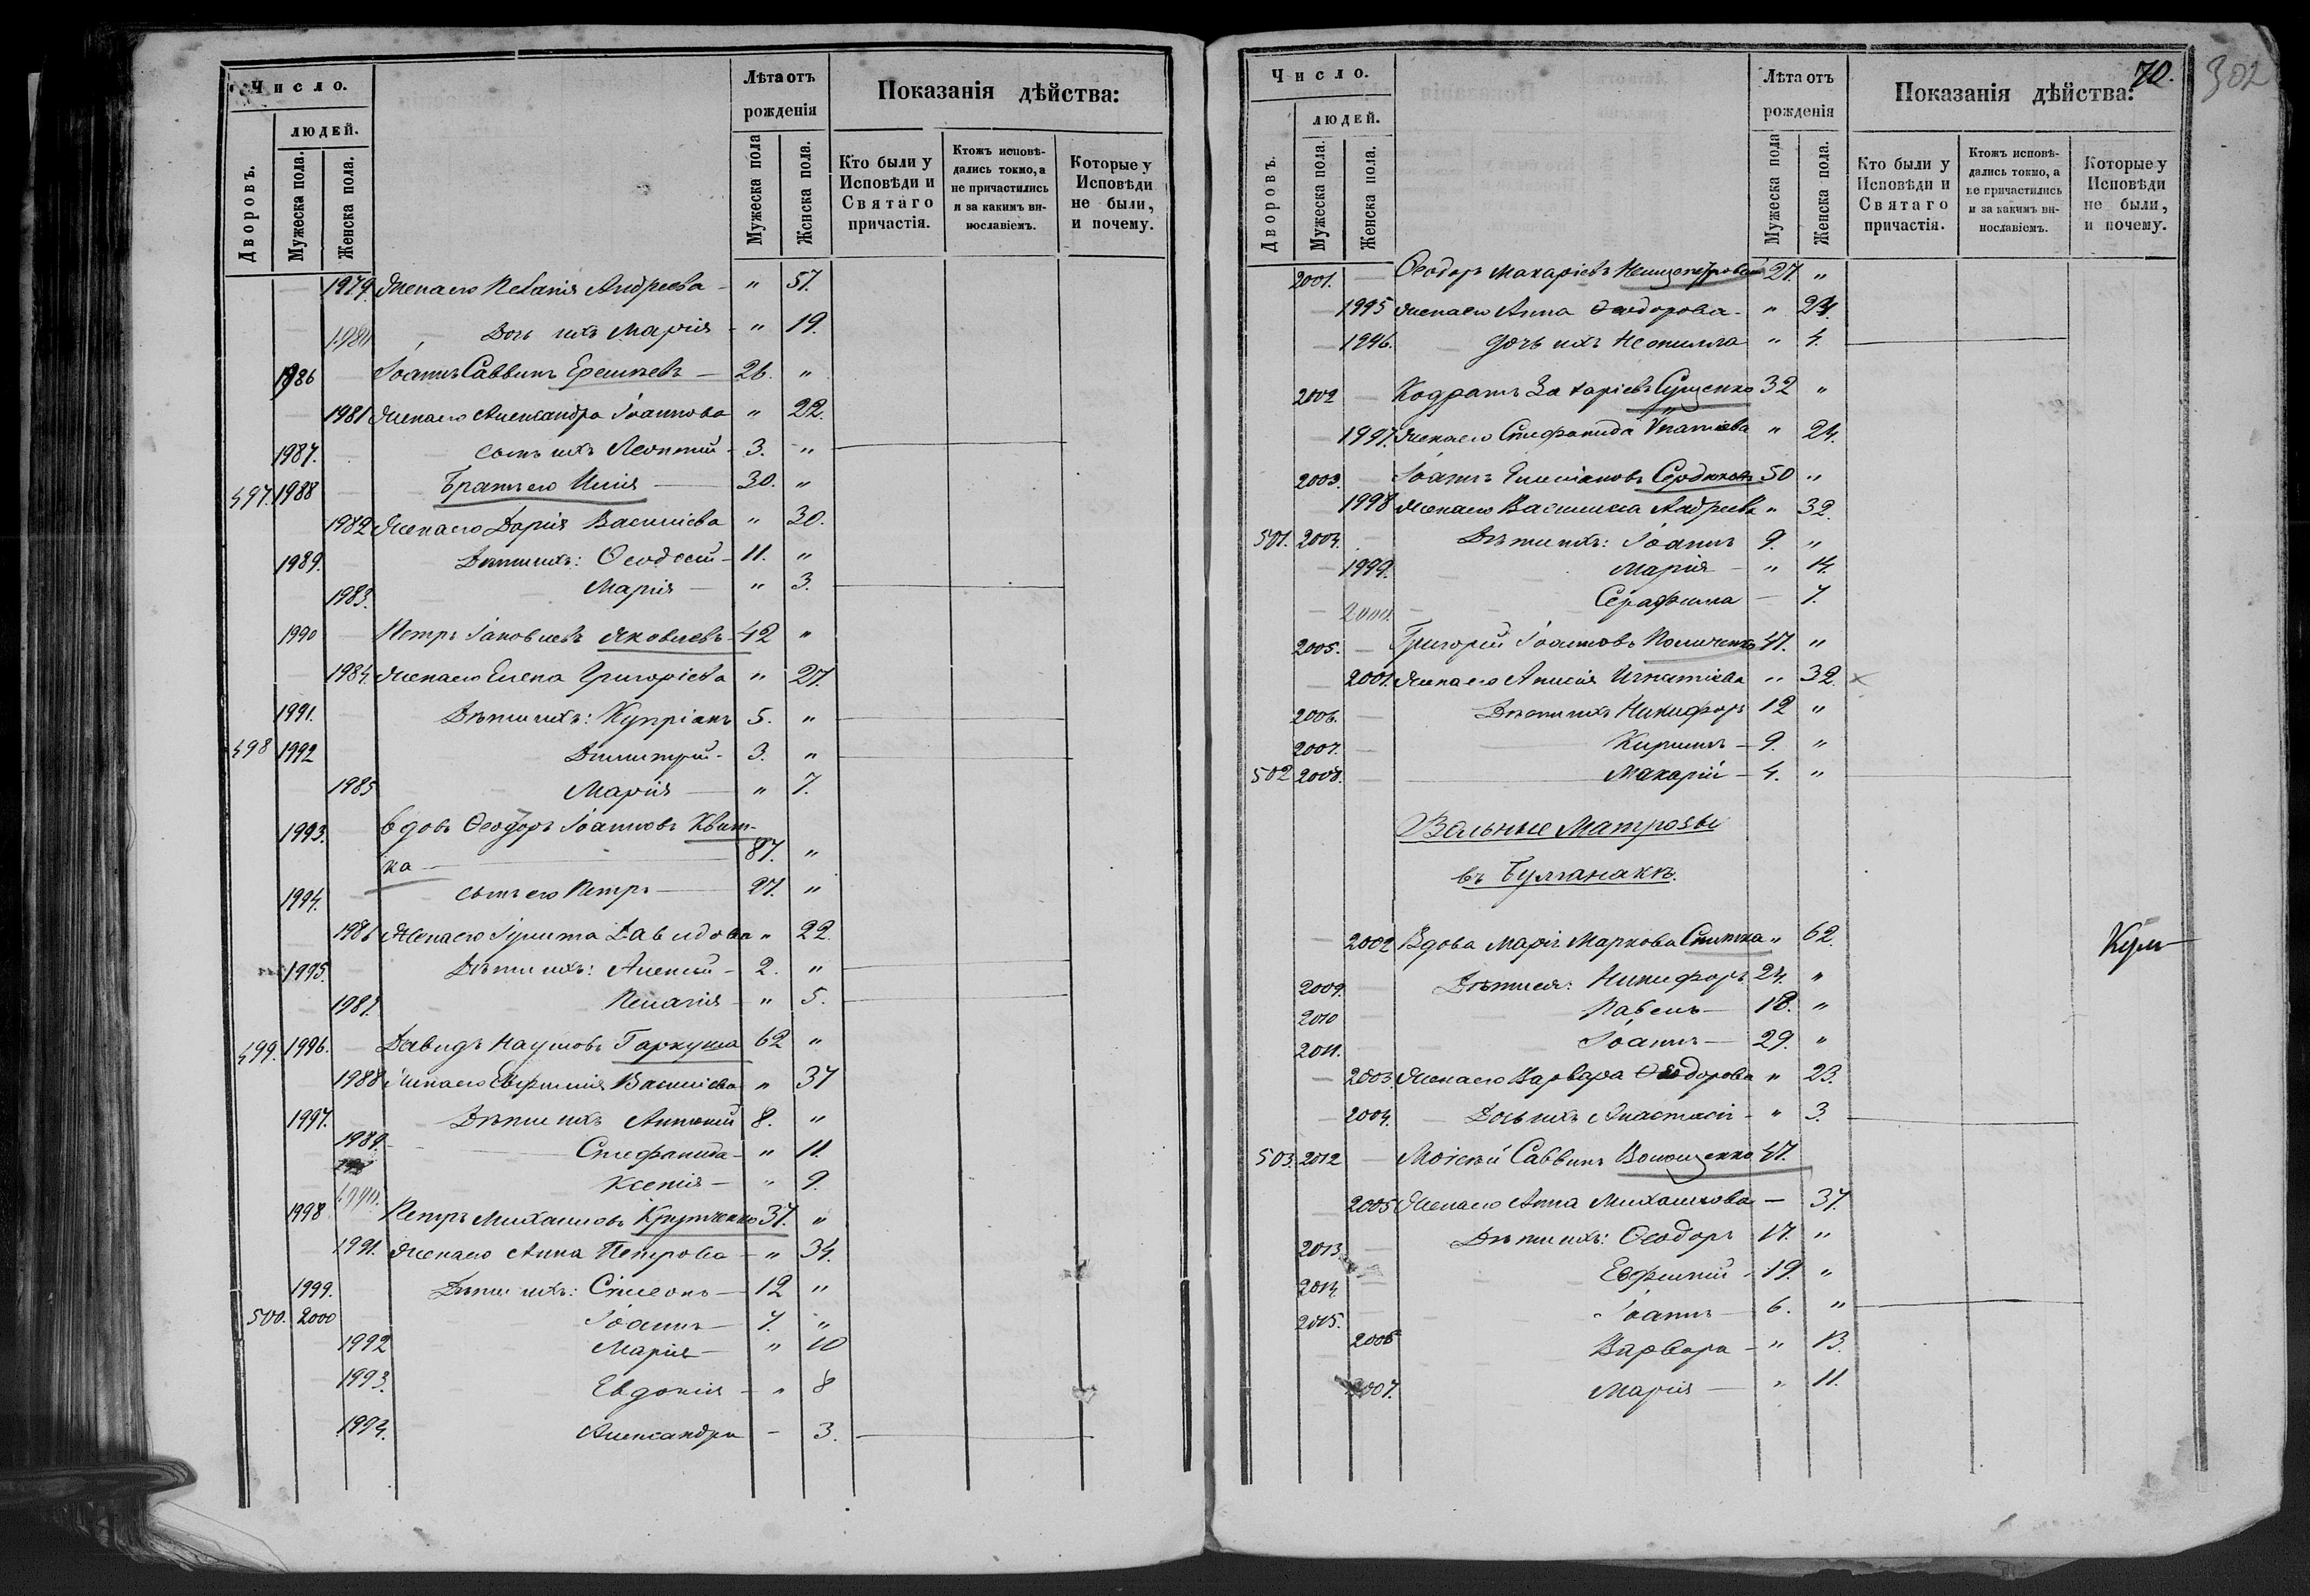 Число.
Лѣта отъ рожденія
Показанія дѣйства:
людей.
Дворовъ.
Мужеска пола.
Женска пола.
Мужеска пола
Женска пола.
Кто были у Исповѣди и Святаго причастія.
Ктожъ исповѣдались токмо, а не причастились и за какимъ винославіемъ.
Которые у Исповѣди не были, и почему.
1979. Жена его Андреева " 57.
1980 Дочь ихъ Марія " 19.
1986 Іоаннъ Саввинъ 26. "
1981 Жена его Александра Іоаннова " 22.
1987. Сынъ ихъ Леонтій 3. "
497. 1988 Братъ его Илія 30. "
1982 Жена его Дарія Василіева " 30.
1989. Дѣти ихъ: Ѳеодосій 11. "
1983. Марія " 3.
1990 Петръ Іаковлевъ Яковлевъ 42 "
1984. Жена его Елена Григоріева " 27.
1991. Дѣти ихъ: Купріанъ 5. "
498 1992 Димитрій 3. "
1985 Марія " 7.
1993. Вдовъ Ѳеодоръ Іоанновъ Квит-
ка 87. "
1994. Сынъ его Петръ 27. "
1986 Жена его Іулитта Давидова " 22.
1995. Дѣти ихъ: Алексій 2. "
1987. Пелагія " 5.
499. 1996. Давидъ Наумовъ Гаркуша 62 "
1988 Жена его Евфимія Василіева " 37
1997. Дѣти ихъ Антоній 8. "
1989. Стефанида " 11.
1990. Ксенія " 9.
1998 Петръ Михаиловъ 37. "
1991. Жена его Анна Петрова " 34.
1999. Дѣти ихъ: Сімеонъ 12 "
500. 2000 Іоаннъ 7. "
1992 Марія " 10
1993. Евдокія " 8
1994. Александра 3.
70.
302
Число.
Лѣта отъ рожденія
Показанія дѣйства:
людей.
Дворовъ.
Мужеска пола.
Женска пола.
Мужеска пола
Женска пола.
Кто были у Исповѣди и Святаго причастія.
Ктожъ исповѣдались токмо, а не причастились и за какимъ винославіемъ.
Которые у Исповѣди не были, и почему.
2001. Ѳеодоръ Макаріевъ 27. "
1995 Жена его Анна Ѳеодорова " 24.
1996. Дочь ихъ Неонилла " 4.
2002 Кодратъ Захаріевъ Сущенко 32 "
1997. Жена его Стефанида Ипатіева " 24.
2003. Іоаннъ Сердюковъ 50 "
1998 Жена его Василиса Андреева " 32.
501. 2004. Дѣти ихъ: Іоаннъ 9. "
1999. Марія " 14.
2000. Серафима 7.
2005. Григорій Іоанновъ 47. "
2001. Жена его Анисія Игнатіева " 32.
2006. Дѣти ихъ Никифоръ 12 "
2007. Кириллъ 9. "
502 2008. Макарій 4. "
Вольные Матрозы
въ Булганакѣ.
2002 Вдова Марія Маркова " 62.
2009. Дѣти ея: Никифоръ 24. "
2010 Павелъ 18. "
2011. Іоаннъ 29. "
2003. Жена его Варвара Ѳеодорова " 23.
2004. Дочь ихъ Анастасія " 3.
503. 2012 Моісей Саввинъ Волощенко 47.
2005 Жена его Анна Михаилова 37.
2013 Дѣти ихъ: Ѳеодоръ 17. "
2014. Евфимій 19. "
2015. Іоаннъ 6. "
2006 Варвара " 13.
2007. Марія " 11.